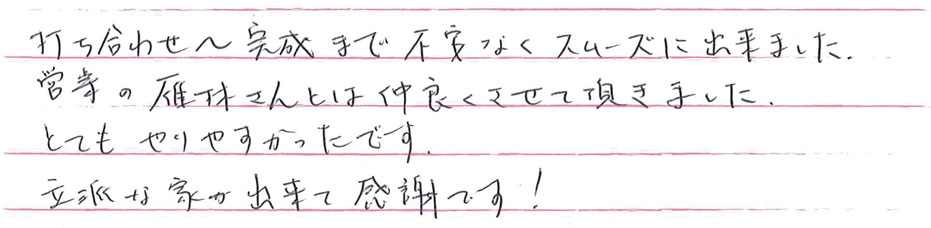 打ち合わせ～完成まで不安なくスムーズに出来ました.
営業の雁林さんとは仲良くさせて頂きました.
とてもやりやすかったです.
立派な家が出来て感謝です!